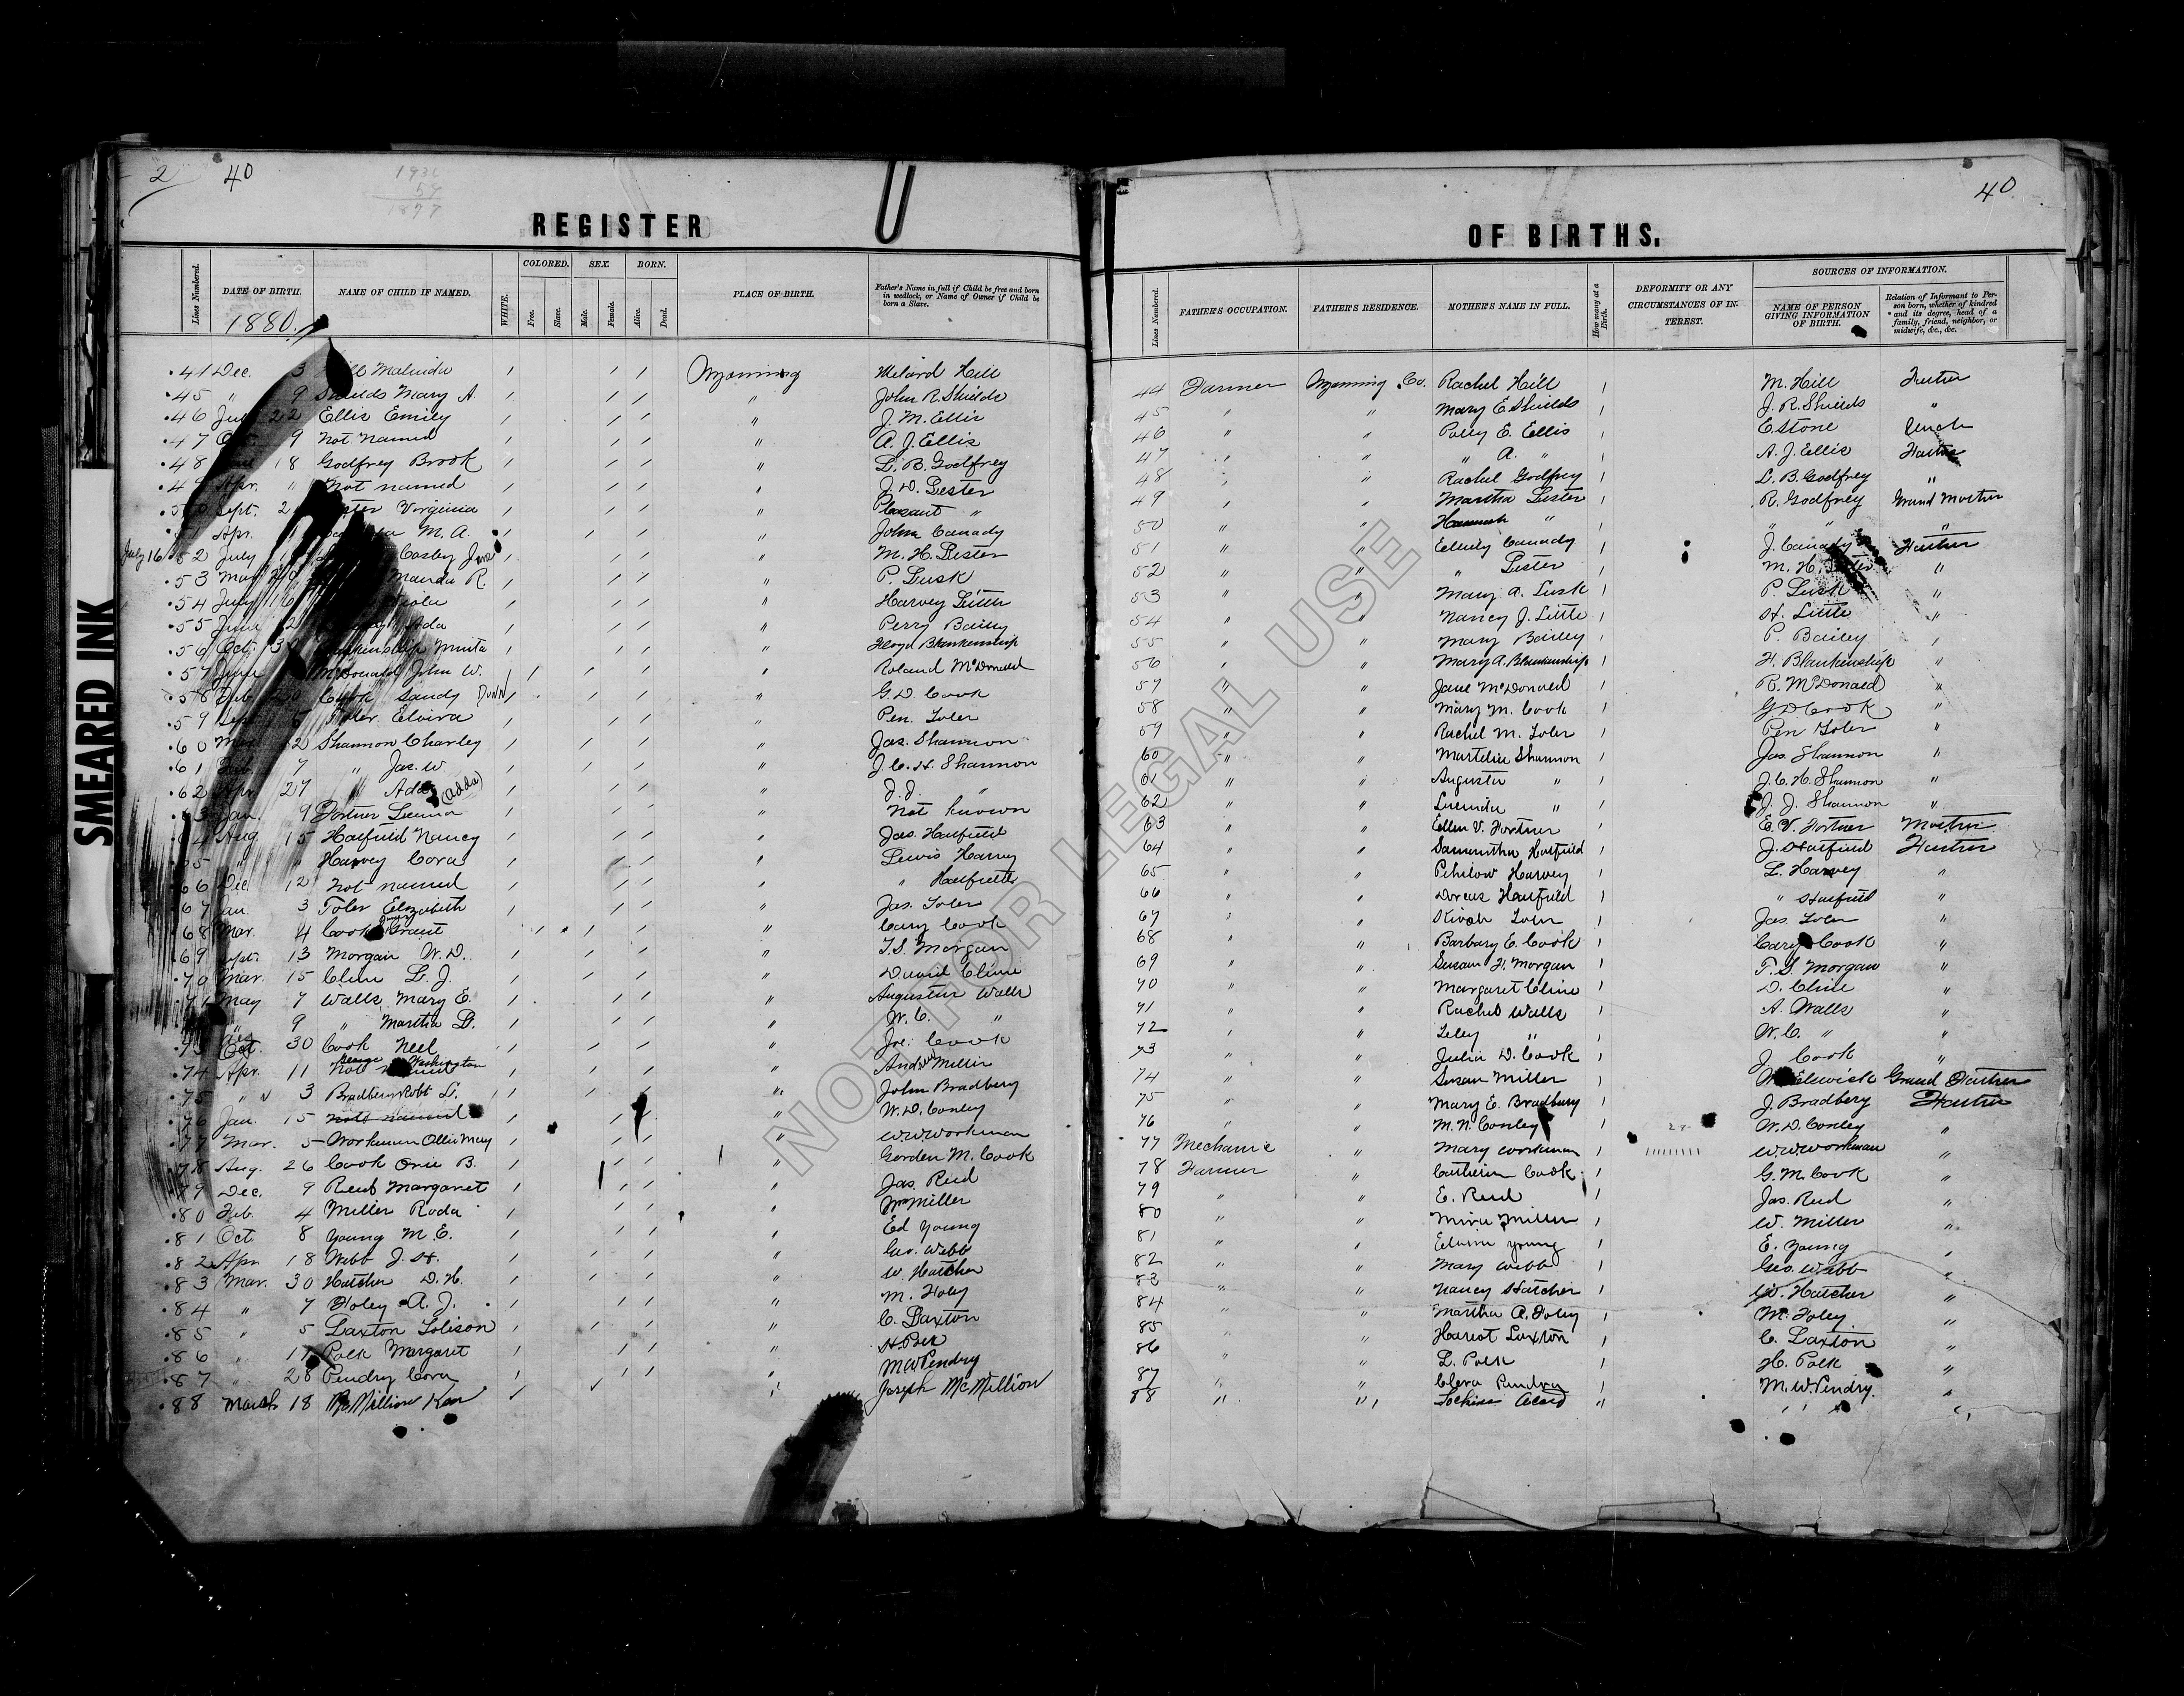 2 40
1936
59
1877
REGISTER
COLORED. SEX. BORN.
Lines Numbered. DATE OF BIRTH. NAME OF CHILD IF NAMED. WHITE. Free. Slave. Male. Female. Alive. Dead. PLACE OF BIRTH. Father's Name in full if Child be free and born in wedlock, or Name of Owner if Child be born a Slave.
1880.
41 Dec. 3 Malinda / / / Wyoming Milard Hill
45 " 9 Shields Mary A. / / / " John R. Shields
46 22 Ellis Emily / / / " J. M. Ellis
47 Oct. 9 Not Named / / / " A. J. Ellis
48 18 Godfrey Brook / / / " L. B. Godfrey
Apr. " Not named / / / " J. D. Lester
Sept. 2 Virginia / / / " Pleasant "
Apr. M. A. / / / " John Canady
July 16 52 July Cosby Jane / / / " M. H. Lester
53 Manda R / / / " P. Lusk
54 July 16 / / / " Harvey Little
55 June Ada / / / " Perry Bailey
56 Oct. 30 Blankenship Minta / / / " Floyd Blankenship
57 June McDonald John W. / / / " Roland McDonald
58 Feb. 20 Cook Sandy Dunn / / / " G. D. Cook
59 Sept. Toler Elvira / / / " Pen. Toler
60 2 Shannon Charley / / / " Jas. Shannon
61 Feb. 7 " Jas. W. / / / " J. C. H. Shannon
62 Apr. 27 " Ada (Adda) / / / " J. J. "
Jan. 9 Fortner / / / " Not known
64 Aug. 15 Hatfield Nancy / / / " Jas. Hatfield
" " Harvey Cora / / / " Lewis Harvey
66 Dec. 12 Not named / / / " " Hatfield
67 Jan. 3 Toler Elizabeth / / / " Jas. Toler
68 Mar. 4 Cook Grant / / / " Cary Cook
69 Sept. 13 Morgan W. D. / / / " T. S. Morgan
70 Mar. 15 Cline L. J. / / / " David Cline
71 May 7 Walls Mary E. / / / " Augustus Walls
" 9 " Martha L. / / / " W. C. "
73 Oct. 30 Cook Neel / / / " Joe. Cook
George Washington
74 Apr. 11 Not named / / / " Andrew Miller
75 " 3 Bradbery Robt L. / / / " John Bradbery
76 Jan. 15 Not named / / / " W. D. Conley
77 Mar. 5 Workman Ollie May / / / " W W Workman
78 Aug. 26 Cook Orie B. / / / " Gorden M. Cook
79 Dec. 9 Reed Margaret / / / " Jas. Reed
80 Feb. 4 Miller Roda / / / " Wm Miller
81 Oct 8 Young M. E. / / / " Ed Young
82 Apr. 18 Webb J. H. / / / " Geo. Webb
83 Mar. 30 Hatcher D. H. / / / " W. Hatcher
84 " 7 Foley A. J. / / / " M. Foley
85 " 5 Laxton Tolison / / / " C. Laxton
86 " 17 Polk Margaret / / / " H. Polk
87 " 28 Pendry Cora / / / " M W Pendry
88 March 18 McMillion / / " Joseph McMillion
40
OF BIRTHS.
SOURCES OF INFORMATION.
Lines Numbered. FATHER'S OCCUPATION. FATHER'S RESIDENCE. MOTHER'S NAME IN FULL. How many at a Birth. DEFORMITY OR ANY CIRCUMSTANCES OF INTEREST. NAME OF PERSON GIVING INFORMATION OF BIRTH. Relation of Informant to Person born, whether of kindred and its degree, head of a family, friend, neighbor, or midwife, &c., &c.
44 Farmer Wyoming Co. Rachel Hill / M. Hill Father
45 " " Mary E Shields / J. R. Shields "
46 " " Polly E. Ellis / E Stone Uncle
47 " " " A. " / A. J. Ellis Father
48 " " Rachel Godfrey / L. B. Godfrey "
49 " " Martha Lester / R. Godfrey Grand Mother
50 " " Hannah " / " " "
51 " " Canady / J. Canady Father
52 " " " Lester / M. H. Lester "
53 " " Mary A. Lusk / P. Lusk "
54 " " Nancy J. Little / H. Little "
55 " " Mary Bailey / P. Bailey "
56 " " Mary A. Blankenship / F. Blankenship "
57 " " Jane McDonald / R. McDonald "
58 " " Mary M. Cook / G D Cook "
59 " " Rachel M. Toler / Pen Toler "
60 " " Shannon / Jas. Shannon "
61 " " Augusta " / J. C. H. Shannon "
62 " " Lucinda " / J. J. Shannon "
63 " " Ellen V. Fortner / E. V. Fortner Mother
64 " " Samantha Hatfield / J. Hatfield Father
65 " " Harvey / L. Harvey "
66 " " Dorcas Hatfield / " Hatfield "
67 " " Toler / Jas. Toler "
68 " " Barbary E. Cook / Cary Cook "
69 " " Susan H. Morgan / T. S. Morgan "
70 " " Margaret Cline / D. Cline "
71 " " Rachel Walls / A. Walls "
72 " " " / W. C. " "
73 " " Julia D. Cook / J. Cook "
74 " " Susan Miller / Grand Father
75 " " Mary E. Bradbury / J. Bradbery Father
76 " " M. N. Conley / W. D. Conley "
77 Mechanic " Mary Workman W W Workman "
78 Farmer " Catherin Cook / G. M. Cook "
79 " " E. Reed / Jas. Reed "
80 " " Miller / W. Miller "
81 " " Young / E. Young "
82 " " Mary Webb / Geo. Webb "
83 " " Nancy Hatcher / W. Hatcher "
84 " " Martha A. Foley / M. Foley "
85 " " Hariet Laxton / C. Laxton "
86 " " L. Polk / H. Polk "
87 " " Clera Pendry / M. W. Pendry. "
88 " " "
SMEARED INK
NOT FOR LEGAL USE